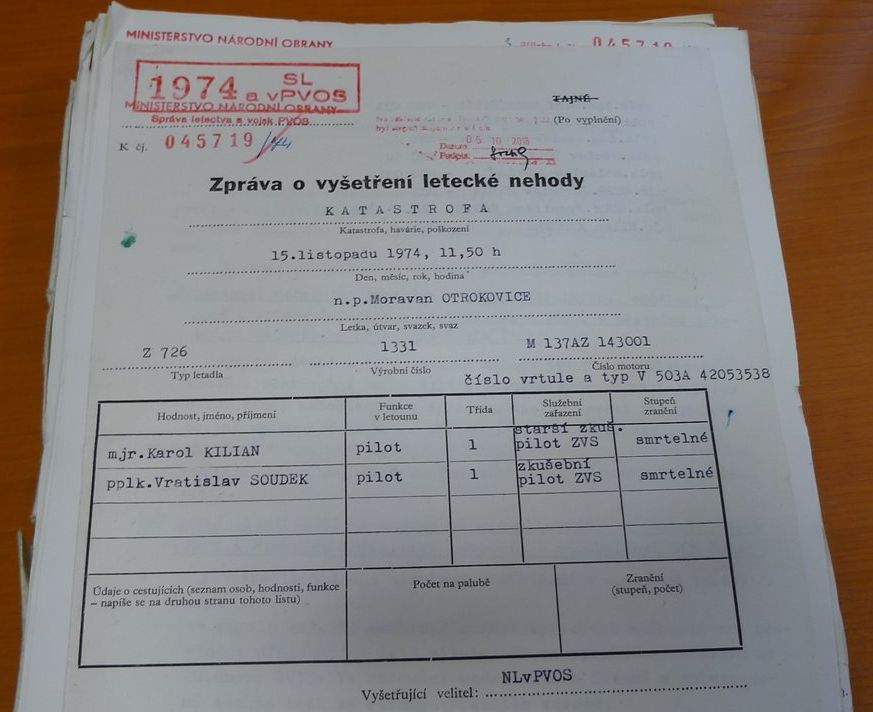 MINISTERSTVO NÁRODNÍ OBRANY
045719
1974 SL a vPVOS
MINISTERSTVO NÁRODNÍ OBRANY
Správa letectva a vojsk PVOS
TAJNÉ
(Po vyplnění)
K čj. 045719/44
05 10 2016
Datum
Podpis
Zpráva o vyšetření letecké nehody
KATASTROFA
Katastrofa, havárie, poškození
15.listopadu 1974, 11,50 h
Den, měsíc, rok, hodina
n.p.Moravan OTROKOVICE
Letka, útvar, svazek, svaz
Z 726 1331 M 137AZ 143001
Typ letadla Výrobní číslo Číslo motoru
číslo vrtule a typ V 503A 42053538
Hodnost, jméno, příjmení Funkce v letounu Třída Služební zařazení Stupeň zranění
mjr.Karol KILIAN pilot 1 starší zkuš. pilot ZVS smrtelné
pplk.Vratislav SOUDEK pilot 1 zkušební pilot ZVS smrtelné
Údaje o cestujících (seznam osob, hodnosti, funkce
– napíše se na druhou stranu tohoto listu)
Počet na palubě
Zranění
(stupeň, počet)
NLvPVOS
Vyšetřující velitel: